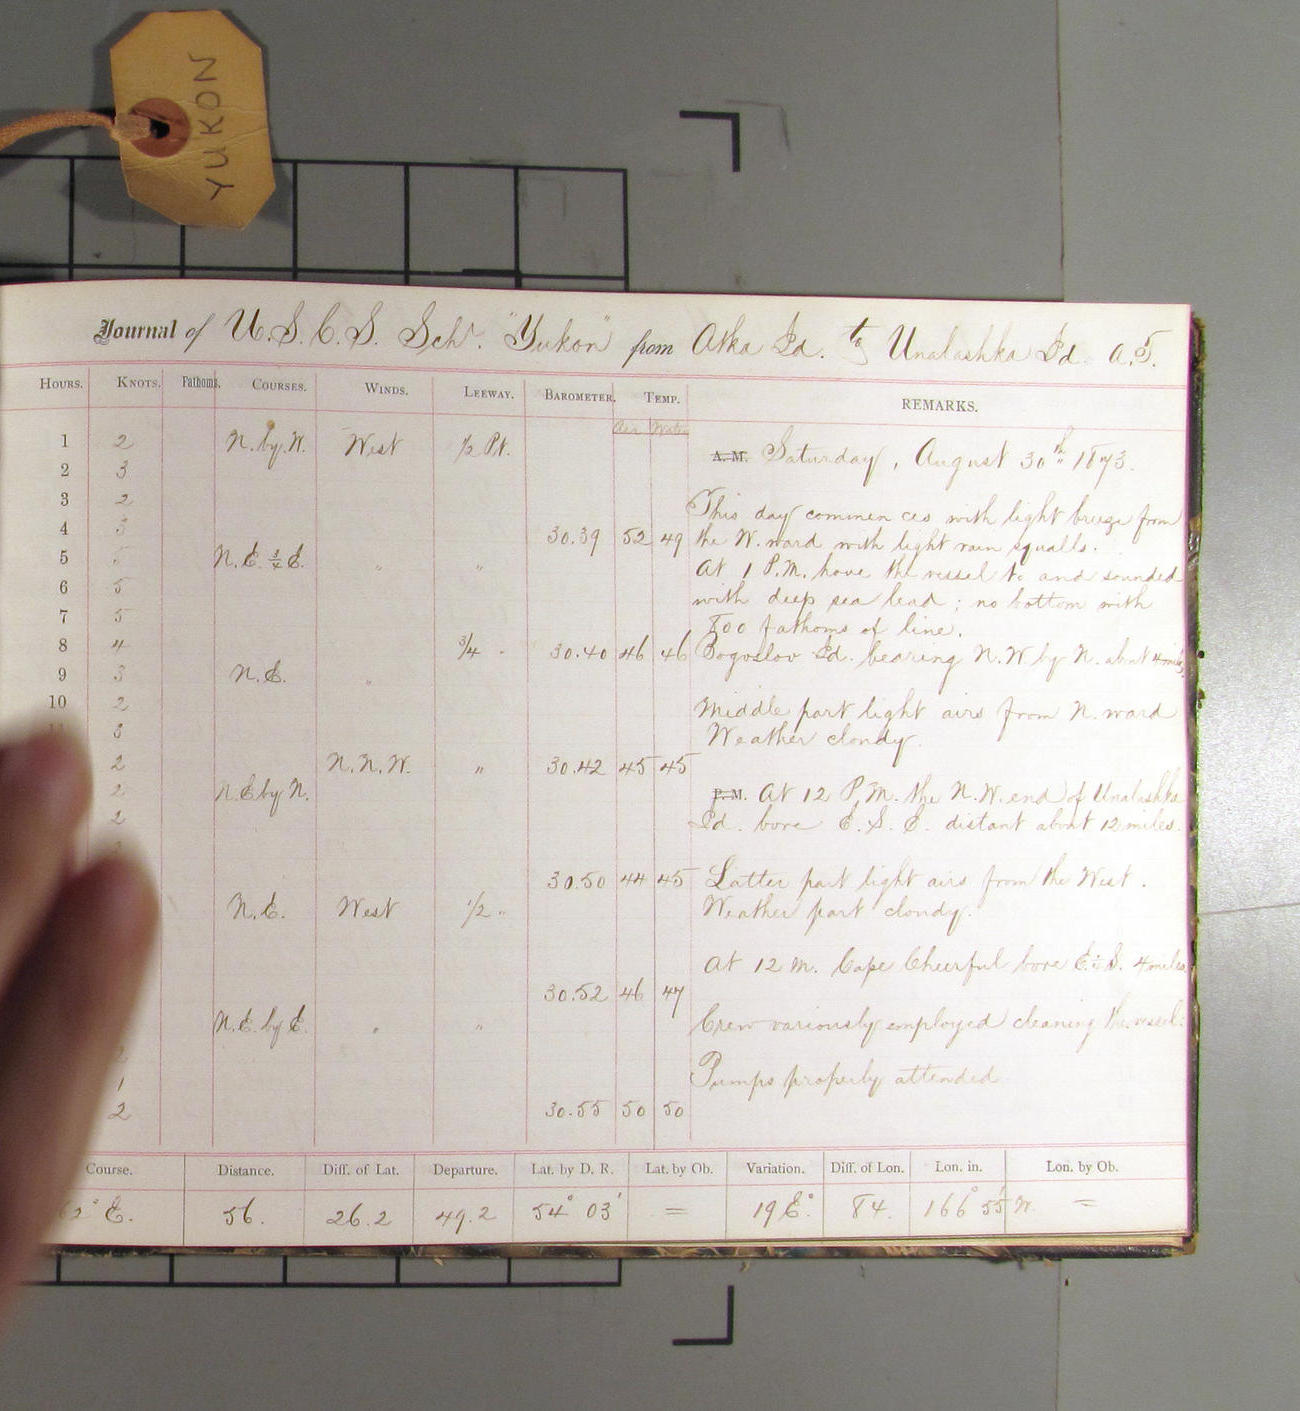 YUKON
Journal of U.S.C.S. Schr. "Yukon" from Atka Id. to Unalashka Id. A.S.
HOURS. KNOTS. Fathoms. COURSES. WINDS. LEEWAY. BAROMETER. TEMP. REMARKS.
Air Water
1 2 N. by W. West 1/2 Pt. A.M. Saturday, August 30th 1873.
2 3
3 2 This day commences with light breeze from
4 3 30.39 52 49 the W. ward with light rain squalls.
5 5 N.E. 1/2 E. " " At 1 P.M. hove the vessel to and sounded
6 5 with deep sea lead ; no bottom with
7 5 800 fathoms of line.
8 4 3/4 " 30.40 46 46 Bogoslov Id. bearing N.W by N. about 4 miles.
9 3 N.E. "
10 2 Middle part light airs from N. ward
11 3 Weather cloudy.
2 N.N.W. " 30.42 45 45
2 N.E by N. P.M. At 12 P.M. the N.W. end of Unalashka
2 Id. bore E.S.E. distant about 12 miles.
30.50 44 45 Latter part light airs from the West.
N.E. West 1/2 " Weather part cloudy.
At 12 M. Cape Cheerful bore 4 miles
30.52 46 47
N.E. by E. " " Crew variously employed cleaning the vessel.
2 Pumps properly attended
1
2 30.55 50 50
Course. Distance. Diff. of Lat. Departure. Lat. by D. R. Lat. by Ob. Variation. Diff. of Lon. Lon. in. Lon. by Ob.
62° E. 56. 26.2 49.2 54° 03' = 19 E.° 84. 166° 55' W. =